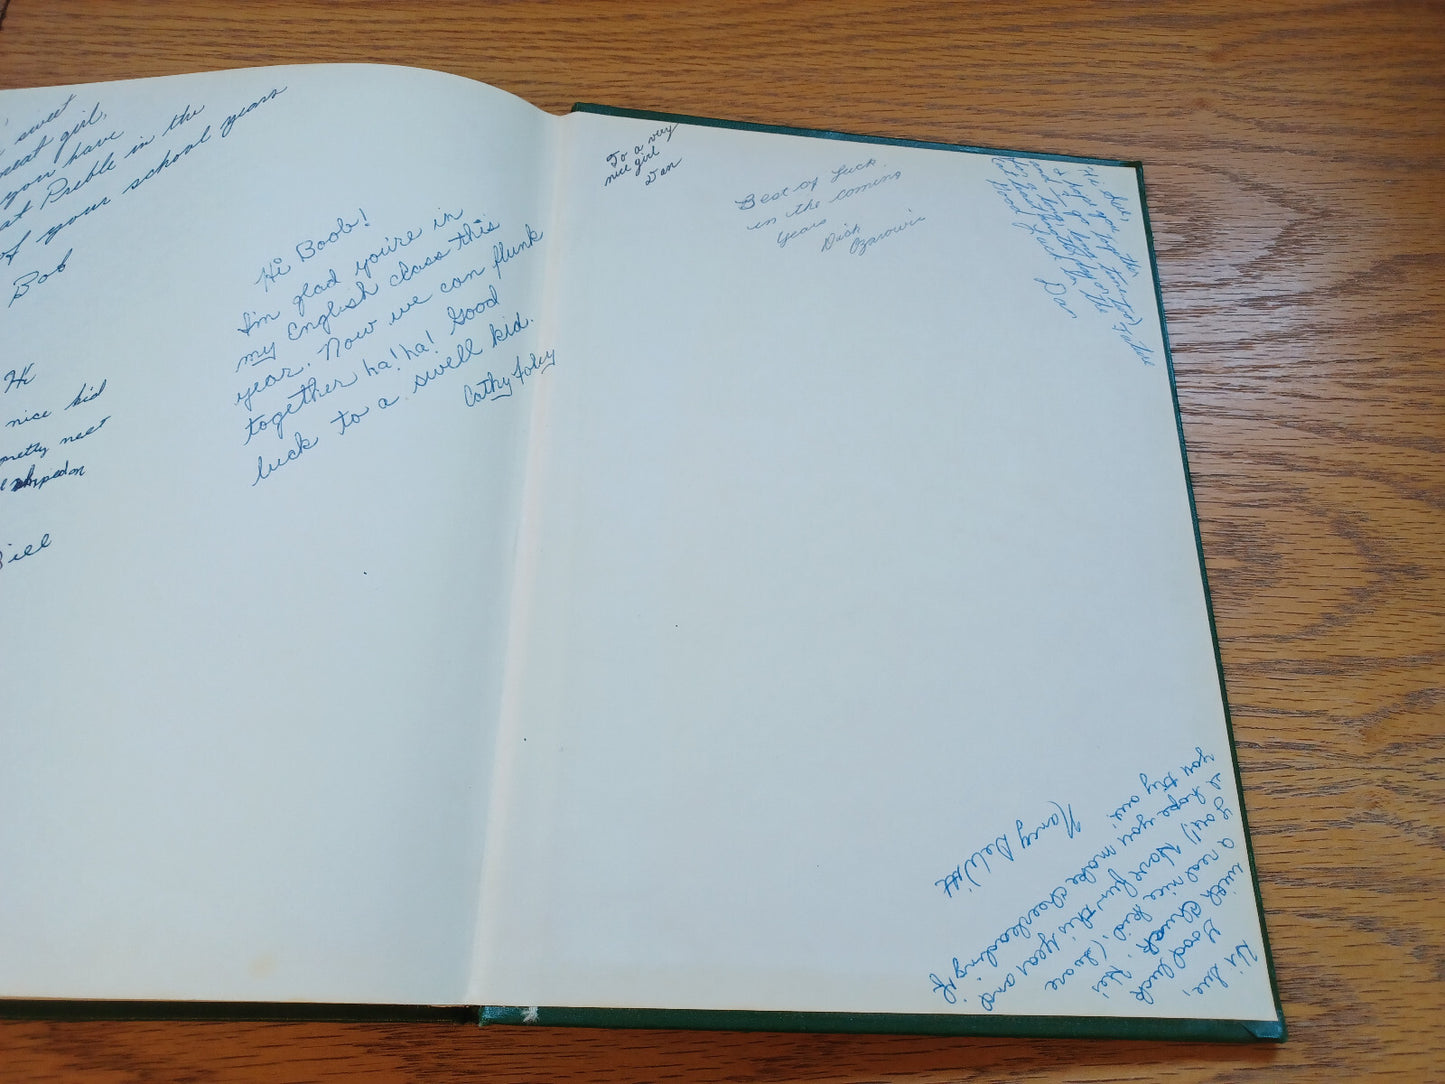 sweet
neat girl,
you have
at Preble in the
of your school years
Bob
Hi
nice kid
pretty neet
Bill
Hi Boob!
I'm glad you're in
my English class this
year. Now we can flunk
together ha! ha! Good
luck to a swell kid.
Cathy Foley
To a very
nice girl
Dan
Best of Luck
in the coming
years
Dick
Ozarowicz
Hi Sue,
Good Luck
Dan
Hi Sue,
Good luck
with Chuck. He's
a real nice kid. (So are
you!) Have fun this year and
I hope you make cheerleading if
you try out!
Nancy DeWitt